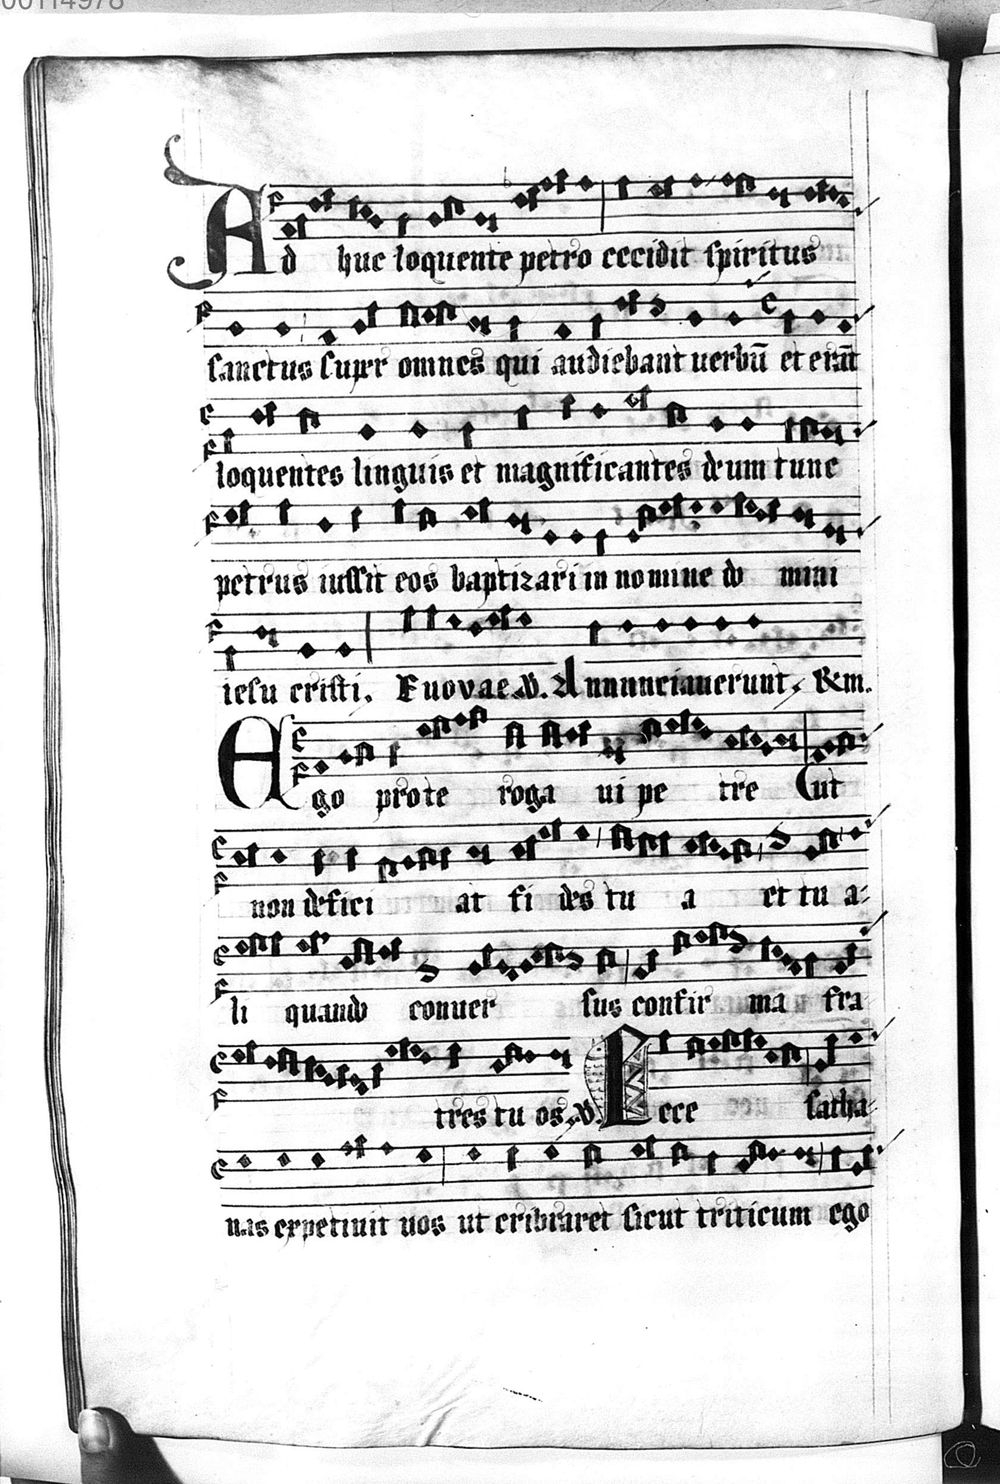 00114978
Ad huc loquente petro cecidit spiritus
sanctus super omnes qui audiebant uerbū et erāt
loquentes linguis et magnificantes deum tunc
petrus iussit eos baptizari in no mine do mini
iesu cristi. Euovae. V. Annunciauerunt. &m.
Ego pro te roga ui pe tre Cut
non defici at fi des tu a et tu a-
li quando conuer sus confir ma fra
tres tu os. V. Ecce satha-
nas expetiuit uos ut cribraret sicut triticum ego